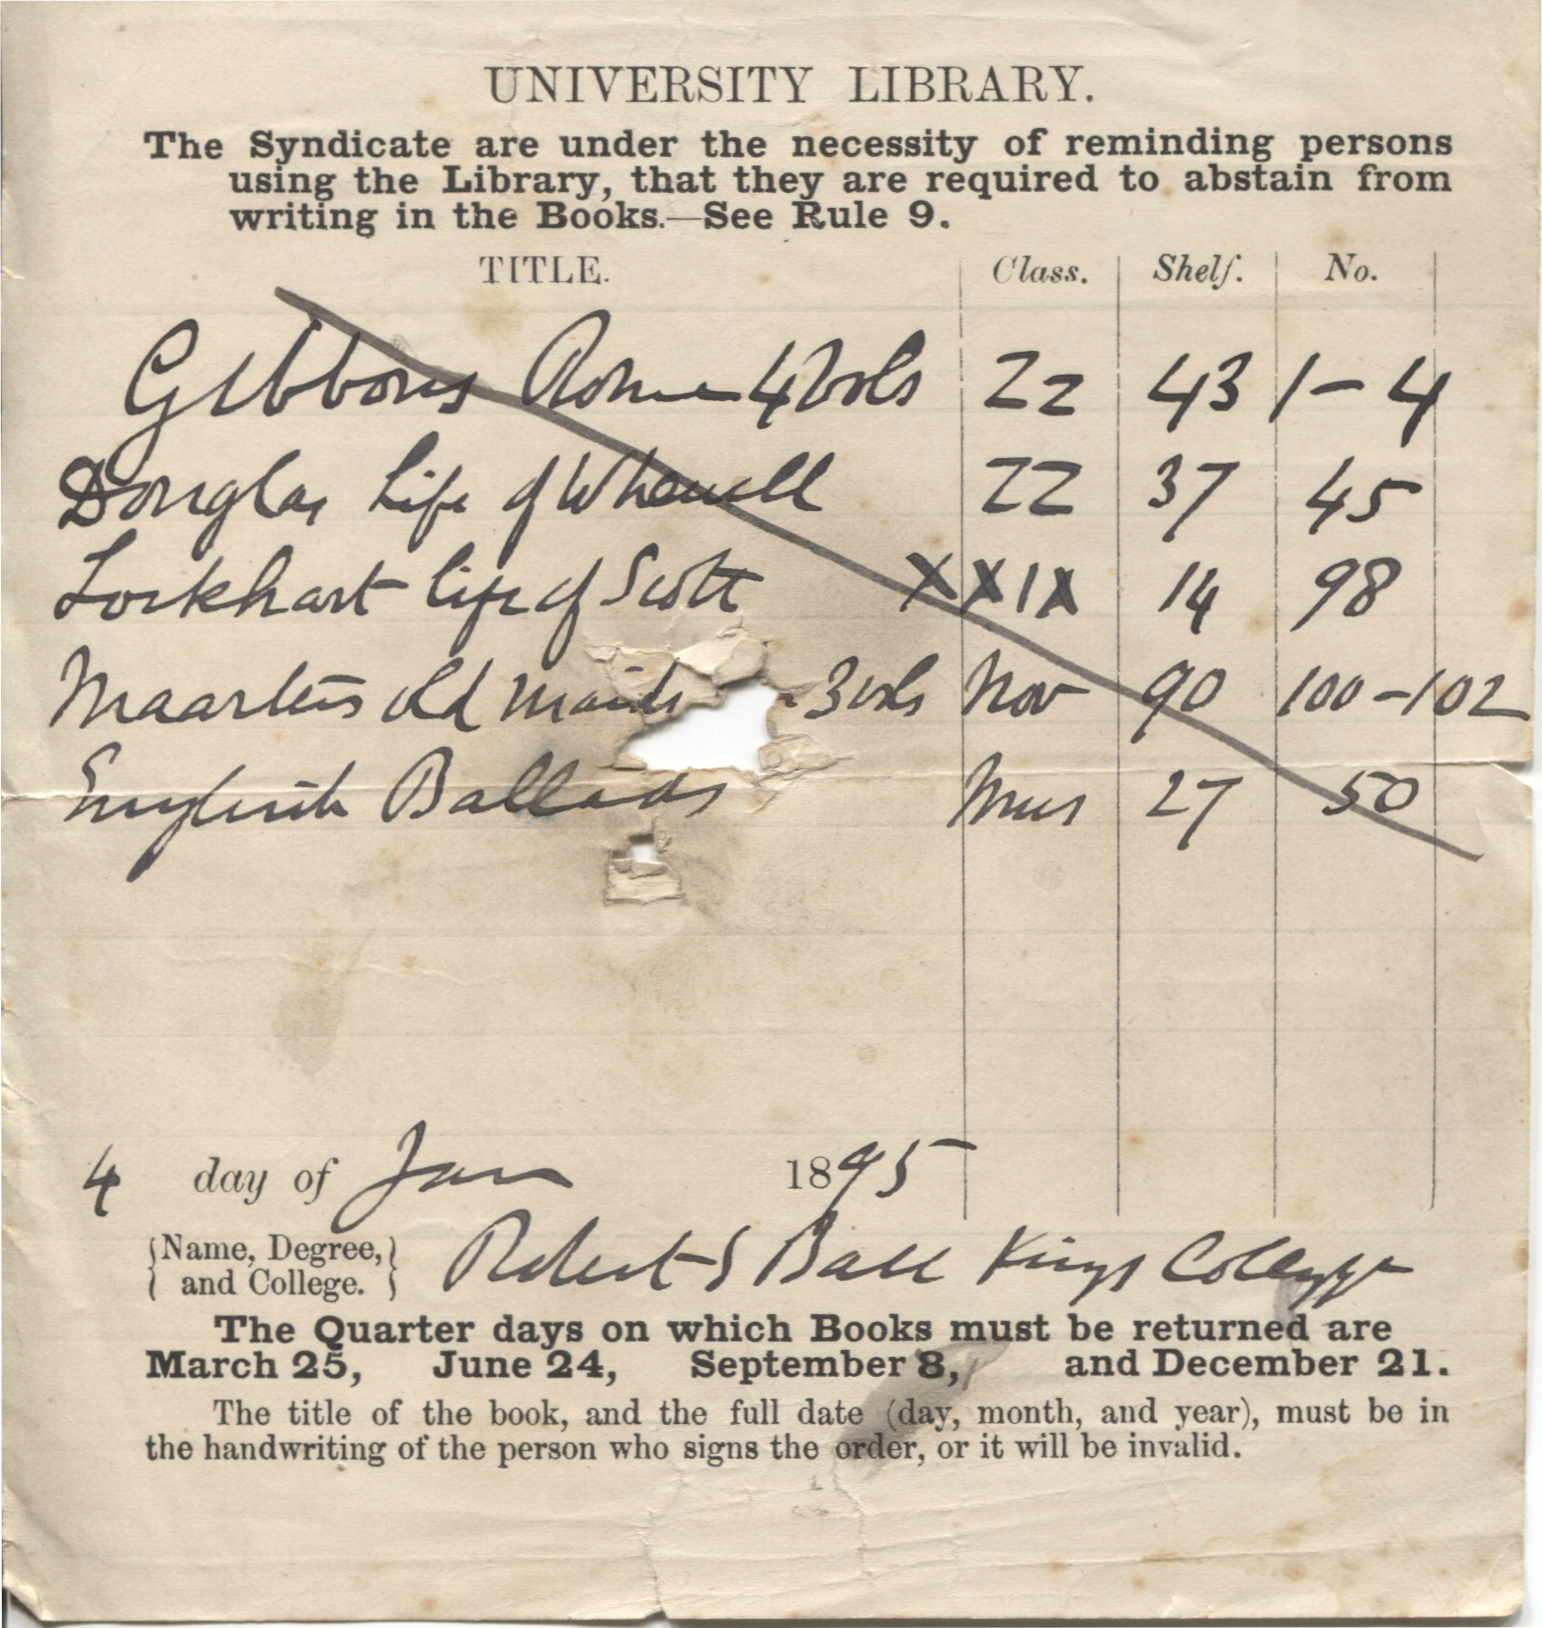 UNIVERSITY LIBRARY.
The Syndicate are under the necessity of reminding persons
using the Library, that they are required to abstain from
writing in the Books.—See Rule 9.
TITLE. Class. Shelf. No.
Gibbons Rome 4 Vols ZZ 43 1-4
Douglas Life of Whewell ZZ 37 45
Lockhart life of Scott XXIX 14 98
Maartens old maids - 3 vols Nov 90 100-102
English Ballads Mus 27 50
4 day of Jan 1895
Name, Degree, and College. Robert S Ball Kings College
The Quarter days on which Books must be returned are
March 25, June 24, September 8, and December 21.
The title of the book, and the full date (day, month, and year), must be in
the handwriting of the person who signs the order, or it will be invalid.